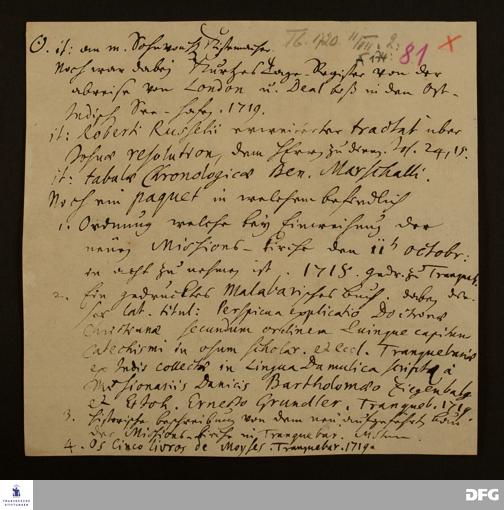 O. it: an m. Sohn von H. 
Tb. 1720. II/VII. 2:
81 x
Noch war dabey Kurtzes Tage-Register von der
abreise von London u. Deal biß in den Ost-
Indisch See-hafen. 1719.
it: Roberti Russelii erweiterter tractat über
Josuæ resolution, dem Herrn zu dienen. Jos. 24, 15.
it: tabulæ Chronologicæ Ben. Marschalli.
Noch ein paquet in welchem befindlich
1. Ordnung welche bey Einweihung der
neuen Missions-Kirche den 11ten octobr:
in acht zu nehmen ist. 1718. gedr. zu Tranqueb.
2. Ein gedrucktes Malabarisches Buch, dabey
lat. titul: Perspicua explicatio Doctrinæ
Christianæ secundum ordinem quinque capitum
Catechismi in usum scholar. et eccl. Tranquebariæ
ex Indis collectæ in Lingua Damulica scripta à
Missionariis Danicis Bartholomæo Ziegenbalg
et Ernesto Grundler. Tranqueb. 1719.
3. historische beschreibung von dem neu aufgeführten bau
der Missions-Kirche in Tranquebar.
4. Os Cinco livros de Moyses. Tranquebar. 1719.
FRANCKESCHE STIFTUNGEN
DFG